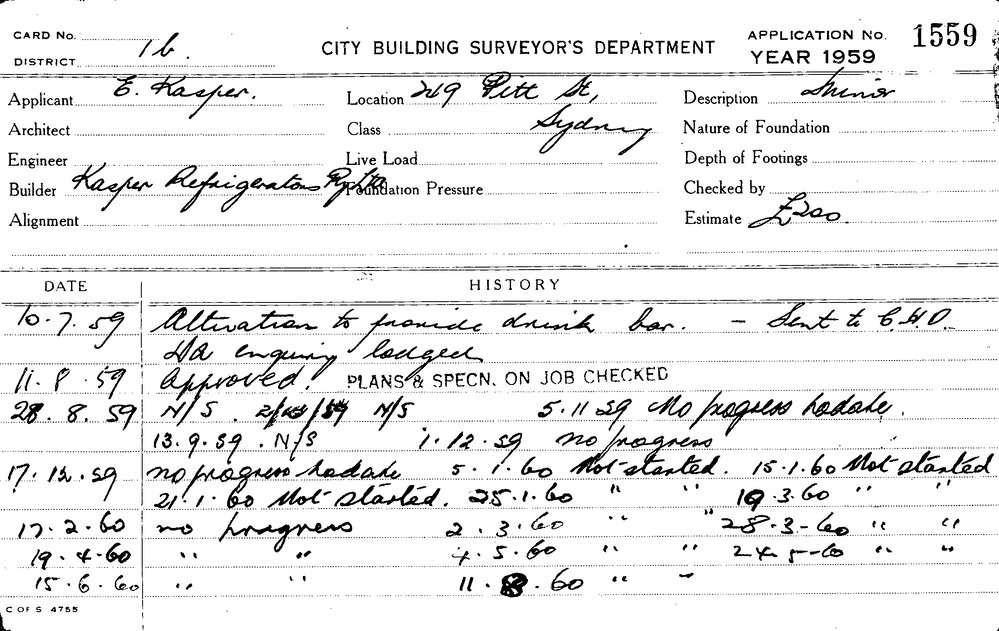 CARD No.
DISTRICT 1b.
CITY BUILDING SURVEYOR'S DEPARTMENT
APPLICATION No. 1559
YEAR 1959
Applicant E. Kasper.
Location 249 Pitt St,
Description Minor
Architect
Class Sydney
Nature of Foundation
Engineer
Live Load
Depth of Footings
Builder Kasper Refrigerators Pty Ltd
Foundation Pressure
Checked by
Alignment
Estimate £200.
DATE HISTORY
10.7.59 Alteration to provide drink bar. – Sent to C.H.O.
DA enquiry lodged
11.8.59 Approved. PLANS & SPECN. ON JOB CHECKED
28.8.59 N/S. N/S 5.11.59 No progress todate.
13.9.59. N/S 1.12.59 no progress
17.12.59 no progress todate 5.1.60 Not started. 15.1.60 Not started
21.1.60 Not started. 25.1.60 " " 19.3.60 " "
17.2.60 no progress 2.3.60 " " 28-3-60 " "
19.4.60 " " 4.5.60 " " 24-5-60 " "
15.6.60 " " 11.8.60 " "
C OF S 4755